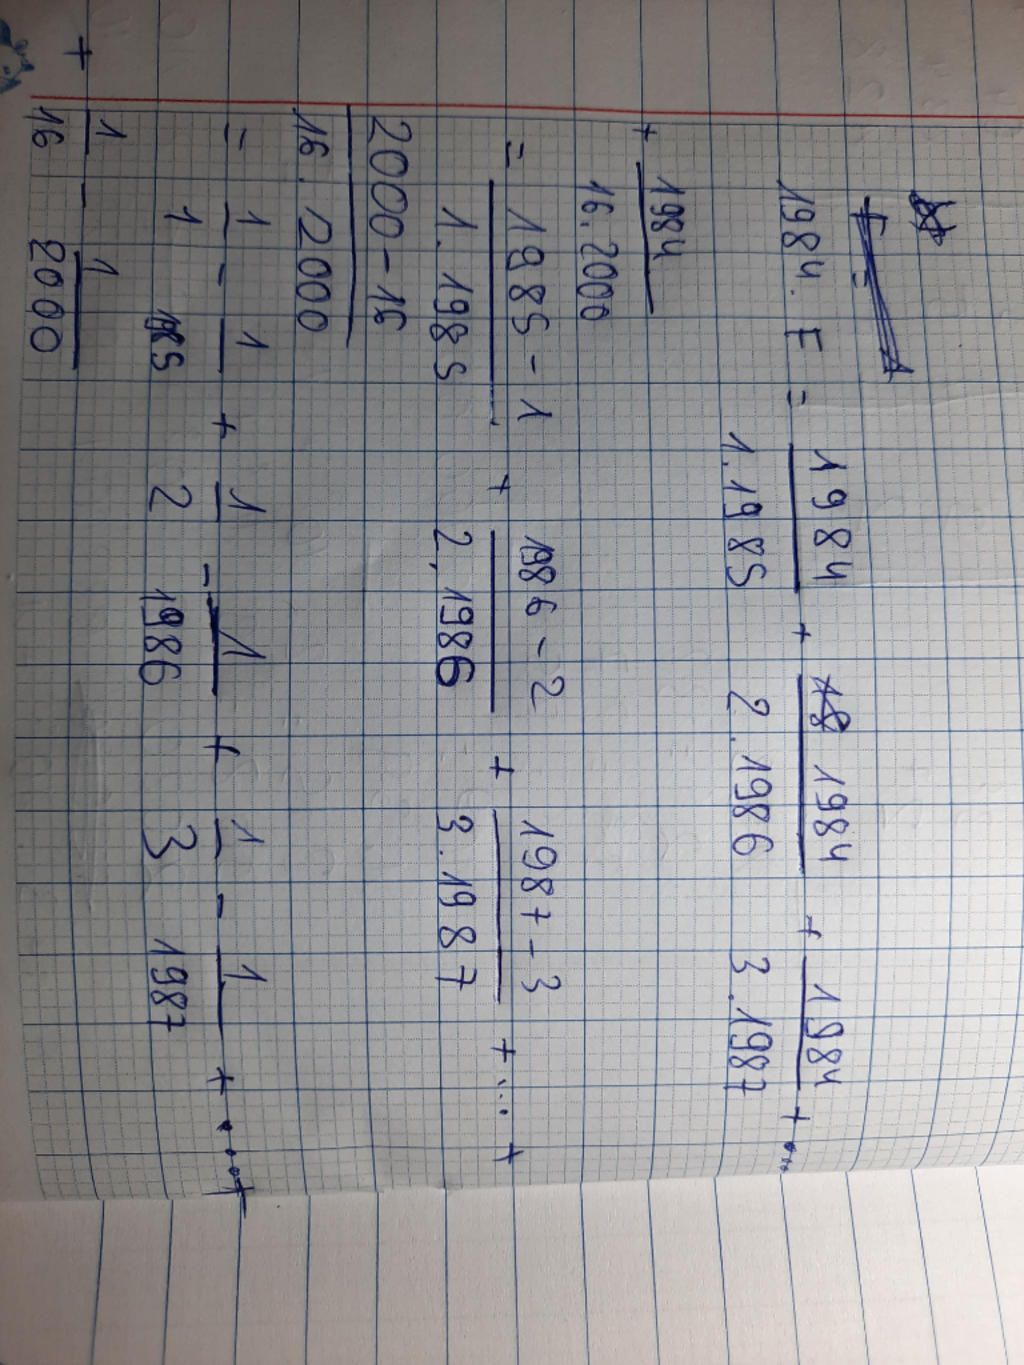 1984. E = 1984/1.1985 + 1984/2.1986 + 1984/3.1987 + ...
+ 1984/16.2000
= 1985-1/1.1985 + 1986-2/2.1986 + 1987-3/3.1987 + ... +
2000-16/16.2000
= 1/1 - 1/1985 + 1/2 - 1/1986 + 1/3 - 1/1987 + .... +
+ 1/16 - 1/2000